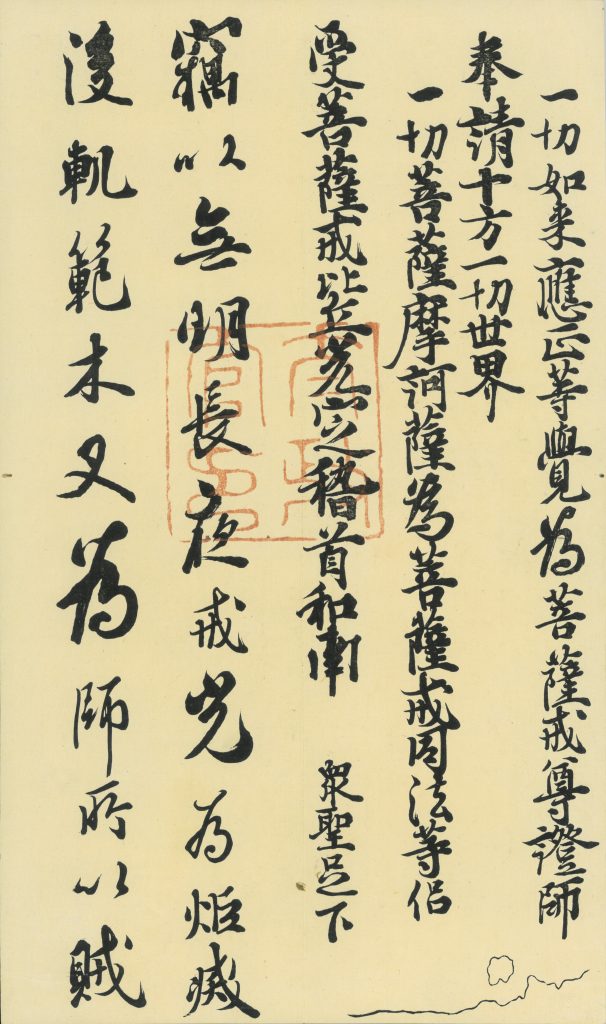 一切如来應正等覺為菩薩戒尊證師
奉請十方一切世界
一切菩薩摩訶薩為菩薩戒同法等侶
受菩薩戒比丘光定稽首和南　衆聖足下
竊以無明長夜戒光為炬滅
後軌範木叉為師所以賊
太政
官印